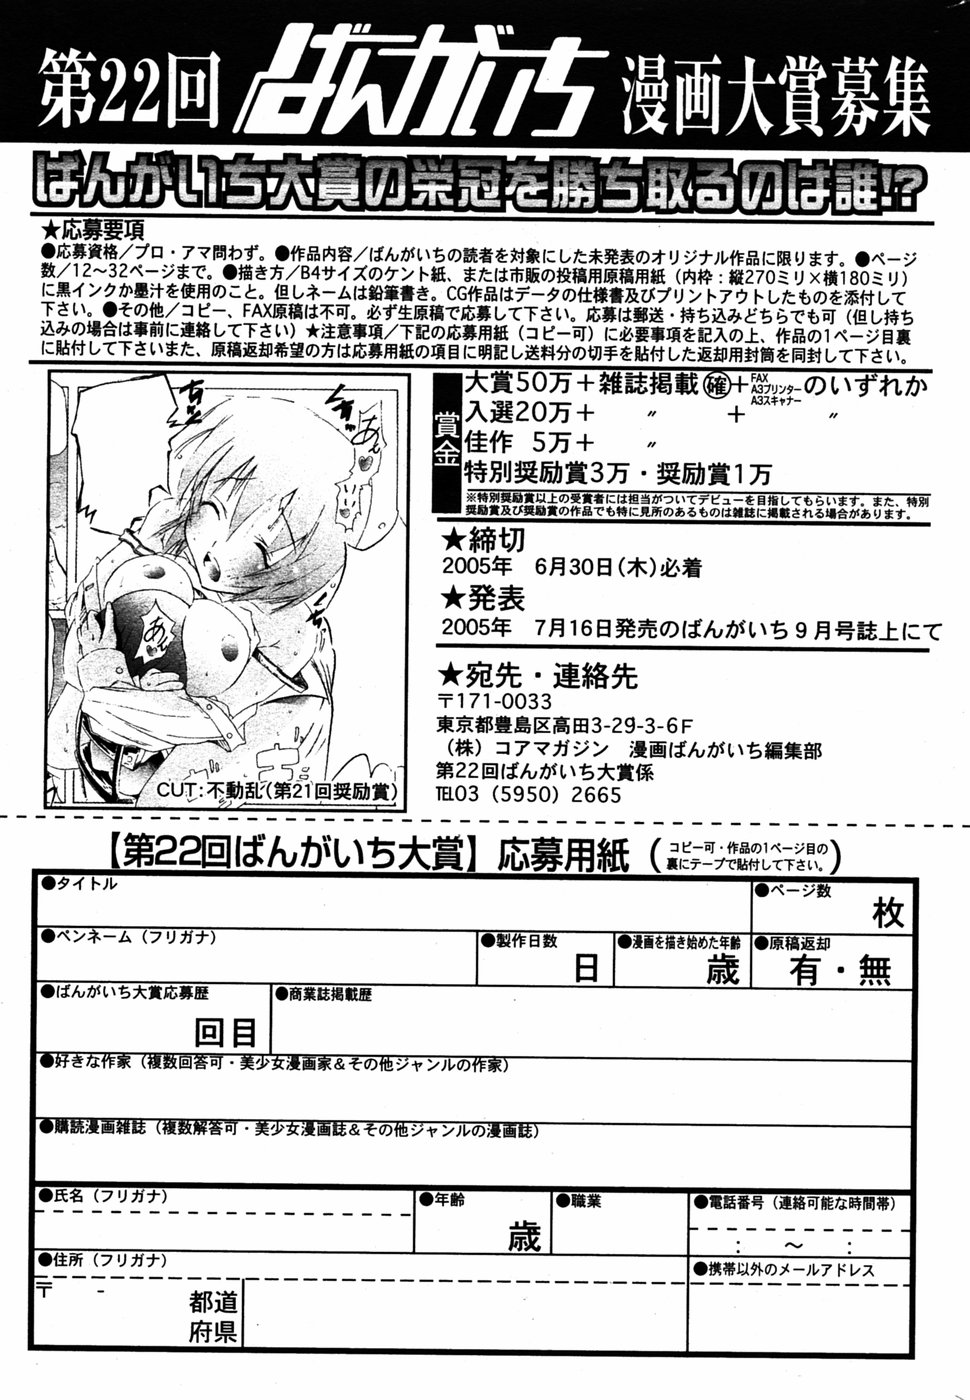 第22回 ばんがいち 漫画大賞募集
ばんがいち大賞の栄冠を勝ち取るのは誰!?
★応募要項
●応募資格／プロ・アマ問わず。●作品内容／ばんがいちの読者を対象にした未発表のオリジナル作品に限ります。●ページ
数／12～32ページまで。●描き方／B4サイズのケント紙、または市販の投稿用原稿用紙（内枠：縦270ミリ×横180ミリ）
に黒インクか墨汁を使用のこと。但しネームは鉛筆書き。CG作品はデータの仕様書及びプリントアウトしたものを添付して
下さい。●その他／コピー、FAX原稿は不可。必ず生原稿で応募して下さい。応募は郵送・持ち込みどちらでも可（但し持ち
込みの場合は事前に連絡して下さい）★注意事項／下記の応募用紙（コピー可）に必要事項を記入の上、作品の1ページ目裏
に貼付して下さいまた、原稿返却希望の方は応募用紙の項目に明記し送料分の切手を貼付した返却用封筒を同封して下さい。
あんっ♥
あんっ♥
CUT：不動乱（第21回奨励賞）
賞金
大賞50万＋雑誌掲載㊣確＋FAX A3プリンター A3スキャナーのいずれか
入選20万＋　〃　＋　〃
佳作　5万＋　〃
特別奨励賞3万・奨励賞1万
※特別奨励賞以上の受賞者には担当がついてデビューを目指してもらいます。また、特別
奨励賞及び奨励賞の作品でも特に見所のあるものは雑誌に掲載される場合があります。
★締切
2005年　6月30日（木）必着
★発表
2005年　7月16日発売のばんがいち９月号誌上にて
★宛先・連絡先
〒171-0033
東京都豊島区高田3-29-3-6Ｆ
（株）コアマガジン　漫画ばんがいち編集部
第22回ばんがいち大賞係
℡03（5950）2665
【第22回ばんがいち大賞】応募用紙（コピー可・作品の1ページ目の
裏にテープで貼付して下さい。）
●タイトル
●ページ数
枚
●ペンネーム（フリガナ）
●製作日数
日
●漫画を描き始めた年齢
歳
●原稿返却
有・無
●ばんがいち大賞応募歴
回目
●商業誌掲載歴
●好きな作家（複数回答可・美少女漫画家＆その他ジャンルの作家）
●購読漫画雑誌（複数解答可・美少女漫画誌＆その他ジャンルの漫画誌）
●氏名（フリガナ）
●年齢
歳
●職業
●電話番号（連絡可能な時間帯）
：　～　：
●住所（フリガナ）
〒　-
都道
府県
●携帯以外のメールアドレス